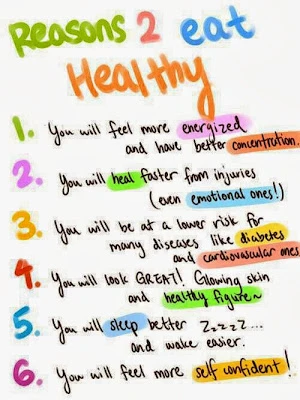 Reasons 2 eat
Healthy
1. You will feel more energized
and have better concentration.
2. You will heal faster from injuries
(even emotional ones!)
3. You will be at a lower risk for
many diseases like diabetes
and cardiovascular ones
4. You will look GREAT! Glowing skin
and healthy figure~
5. You will sleep better Zzzzz...
and wake easier.
6. You will feel more self confident!